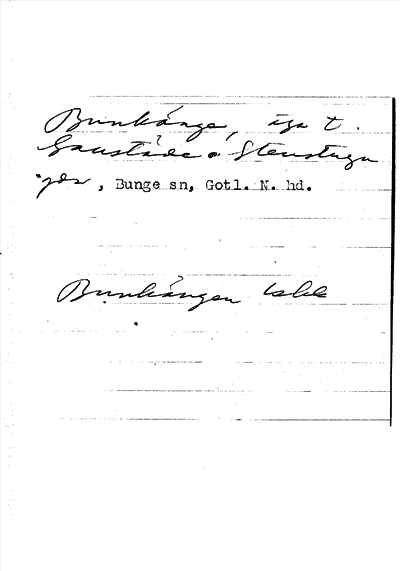 Bunkänge, äga t.
Gaustäde o. Stenstugu
gdr, Bunge sn, Gotl. N. hd.
Bunkängen